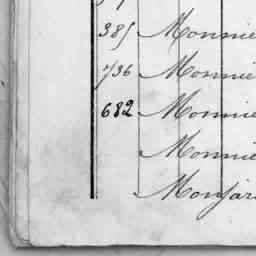 385 Monnie
736 Monnie
682 Monnie
Monnie
Monjar